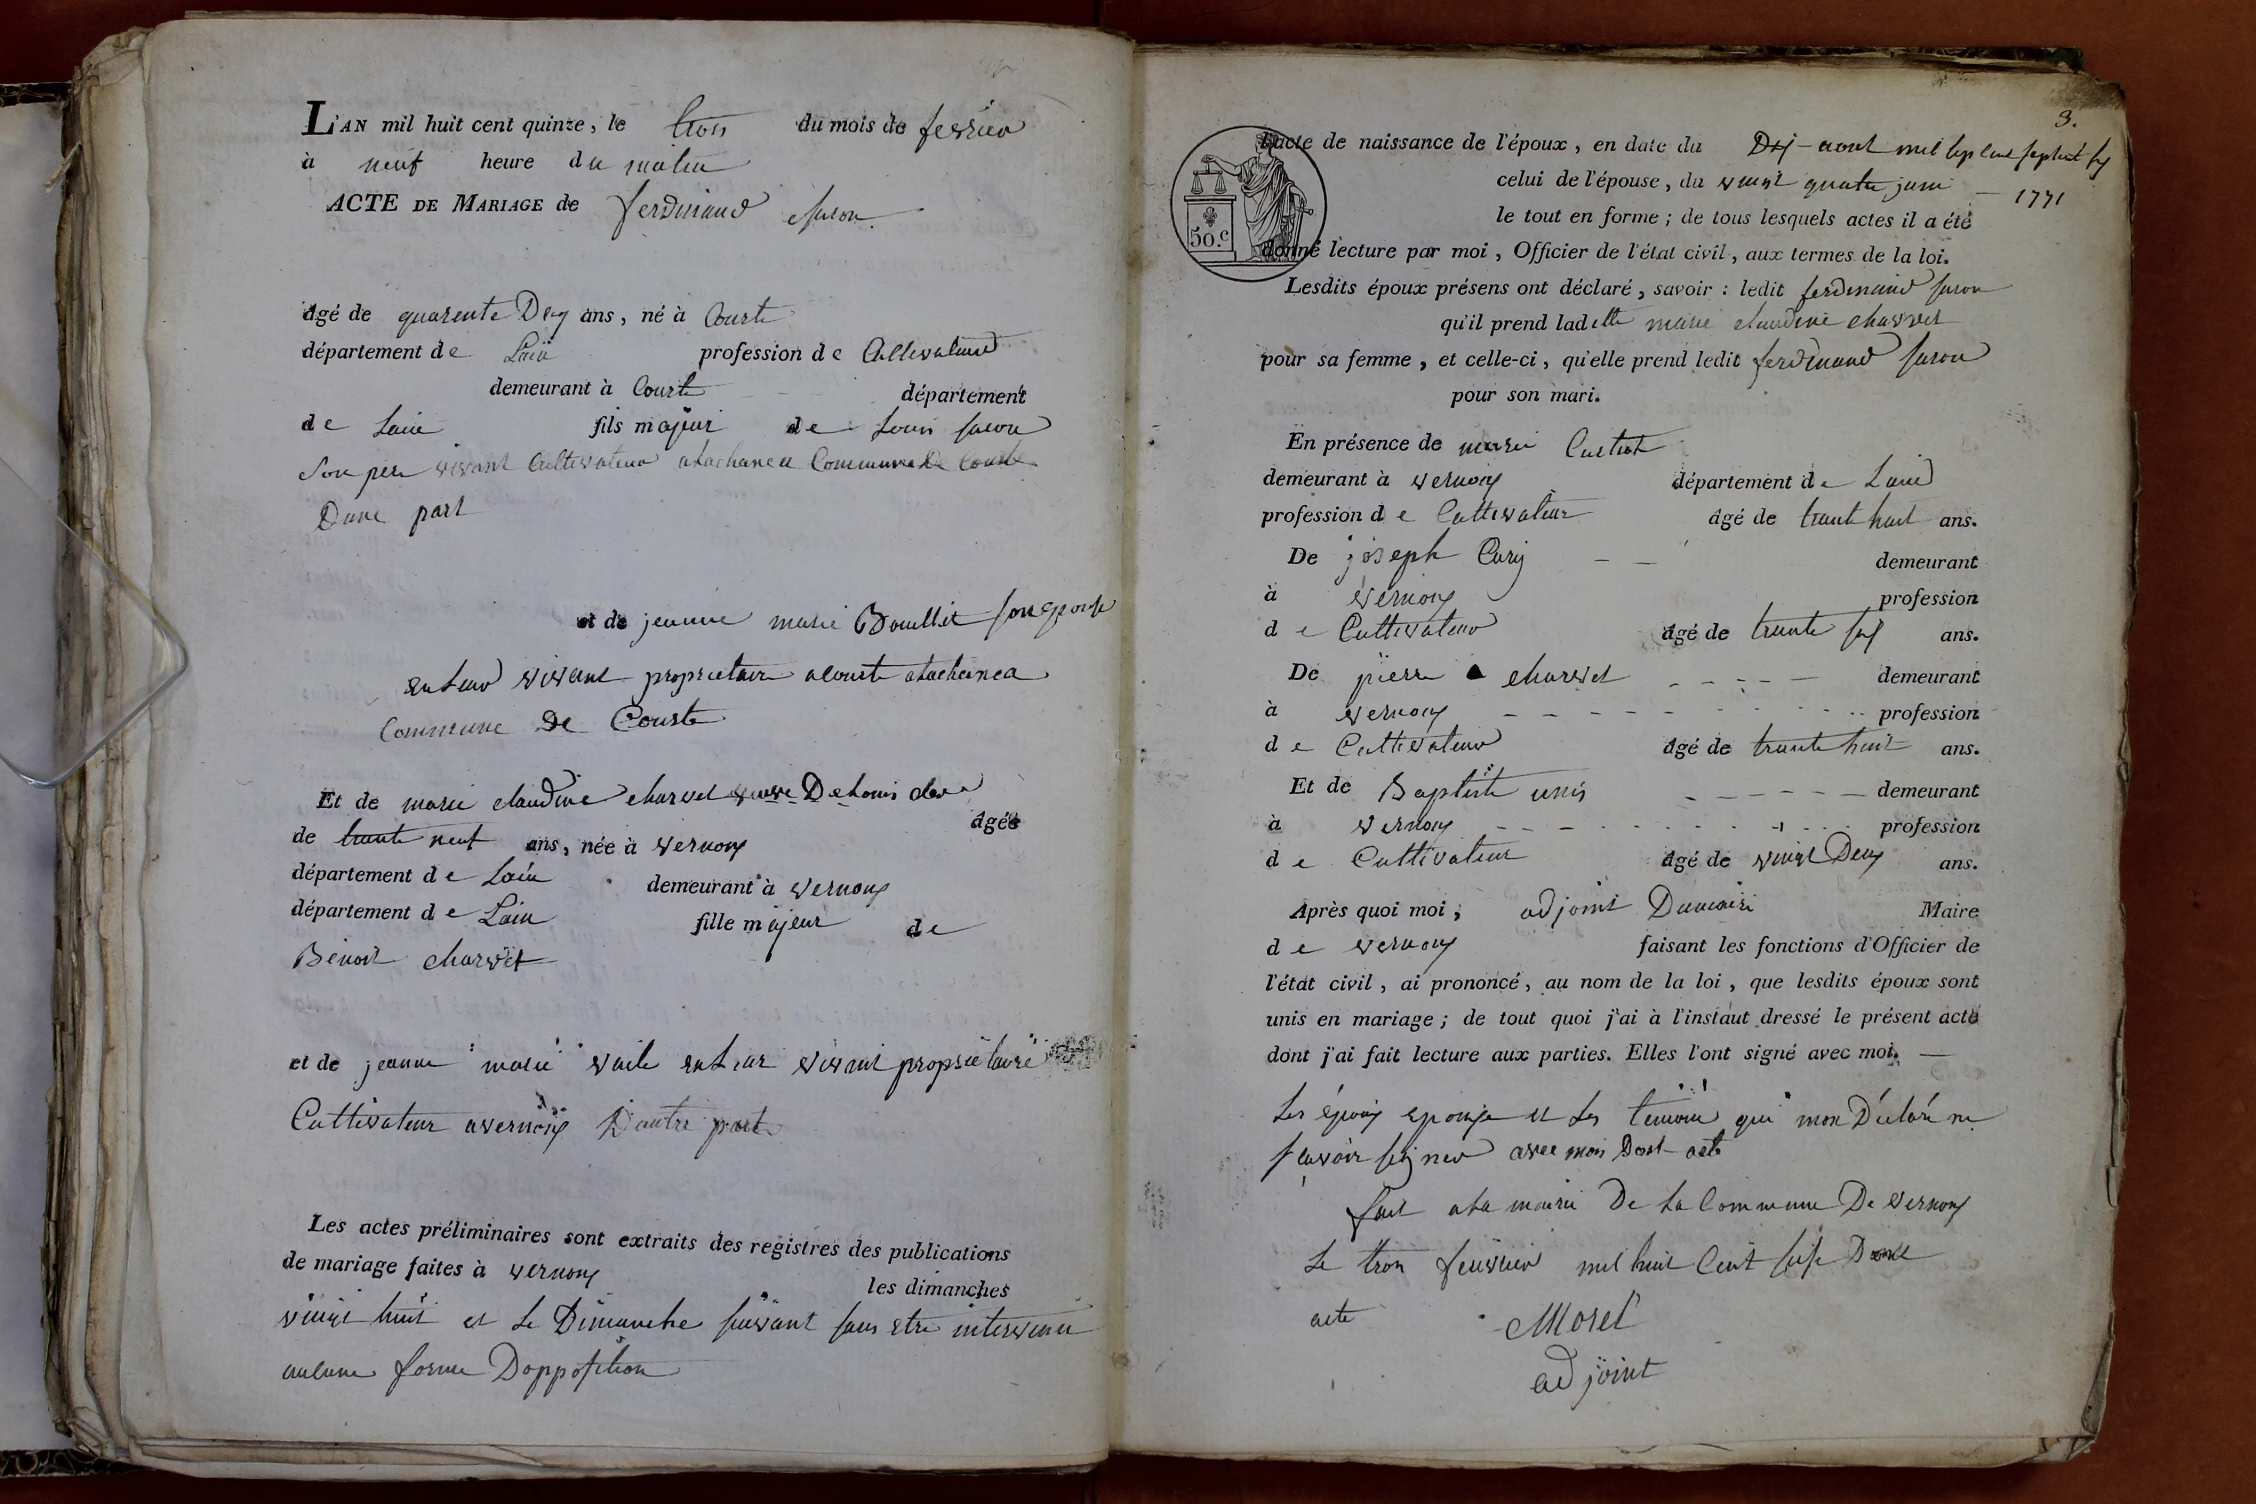 L'AN mil huit cent quinze, le trois du mois de fevrier
à neuf heure du matin
ACTE DE MARIAGE de ferdinand
âgé de quarente Deux ans, né à Courte
département de Lain profession de Cultivateur
demeurant à Courte département
de Lain fils majeur de Louis
Son pere vivant Cultivateur alachanea Commune De Courte
Dune part
et de jeanne marie Bouillet son epouse
en leur vivant proprietaire a Courte alachanea
Commune De Courte
Et de marie claudine charvet veuve De Louis
âgée
de trante neuf ans, née à vernoux
département de Lain demeurant à vernoux
département de Lain fille majeur de
Benoit charvet
et de jeanne marie en leur vivant proprietaire
Cultivateur a vernoux D'autre part
Les actes préliminaires sont extraits des registres des publications
de mariage faites à vernoux les dimanches
vingt huit et le Dimanche suivant sans etre intervenu
aucune forme Dopposition
3.
L'acte de naissance de l'époux, en date du aout mil sept cent
celui de l'épouse, du vingt quatre juin 1771
le tout en forme ; de tous lesquels actes il a été
50.c
donné lecture par moi, Officier de l'état civil, aux termes de la loi.
Lesdits époux présens ont déclaré, savoir : ledit ferdinand
qu'il prend ladette marie claudine charvet
pour sa femme, et celle-ci, qu'elle prend ledit ferdinand
pour son mari.
En présence de marie
demeurant à vernoux département de Lain
profession de Cultivateur âgé de trante huit ans.
De joseph demeurant
à vernoux profession
de Cultivateur âgé de trante six ans.
De pierre charvet demeurant
à vernoux profession
de Cultivateur âgé de trante huit ans.
Et de Baptiste demeurant
à vernoux profession
de Cultivateur âgé de vingt Deux ans.
Après quoi moi, adjoint Dumaire Maire
de vernoux faisant les fonctions d'Officier de
l'état civil, ai prononcé, au nom de la loi, que lesdits époux sont
unis en mariage ; de tout quoi j'ai à l'instant dressé le présent acte
dont j'ai fait lecture aux parties. Elles l'ont signé avec moi.
Les époux epouse et les temoin qui mon Déclaré ne
savoir signer avec moi Dont acte
fait ala mairie De La Commune De vernoux
Le trois feuvrier mil huit Cent Dont
acte Morel
adjoint